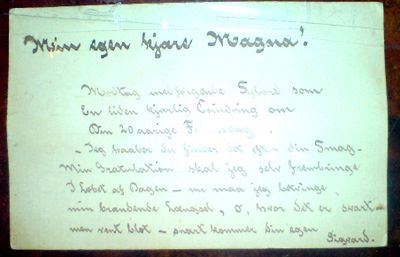 Min egen kjære Magna!
Modtag medfølgende som
En liden kjærlig Erindring om
Din 20 aarige
- Jeg haaber du finder det efter din Smag -
Min Gratulation skal jeg selv frembringe
I Løbet af Dagen - nu maa jeg betvinge
min brændende Længsel, O, hvor det er svart -
men vent blot - snart kommer din egen
Sigvard.